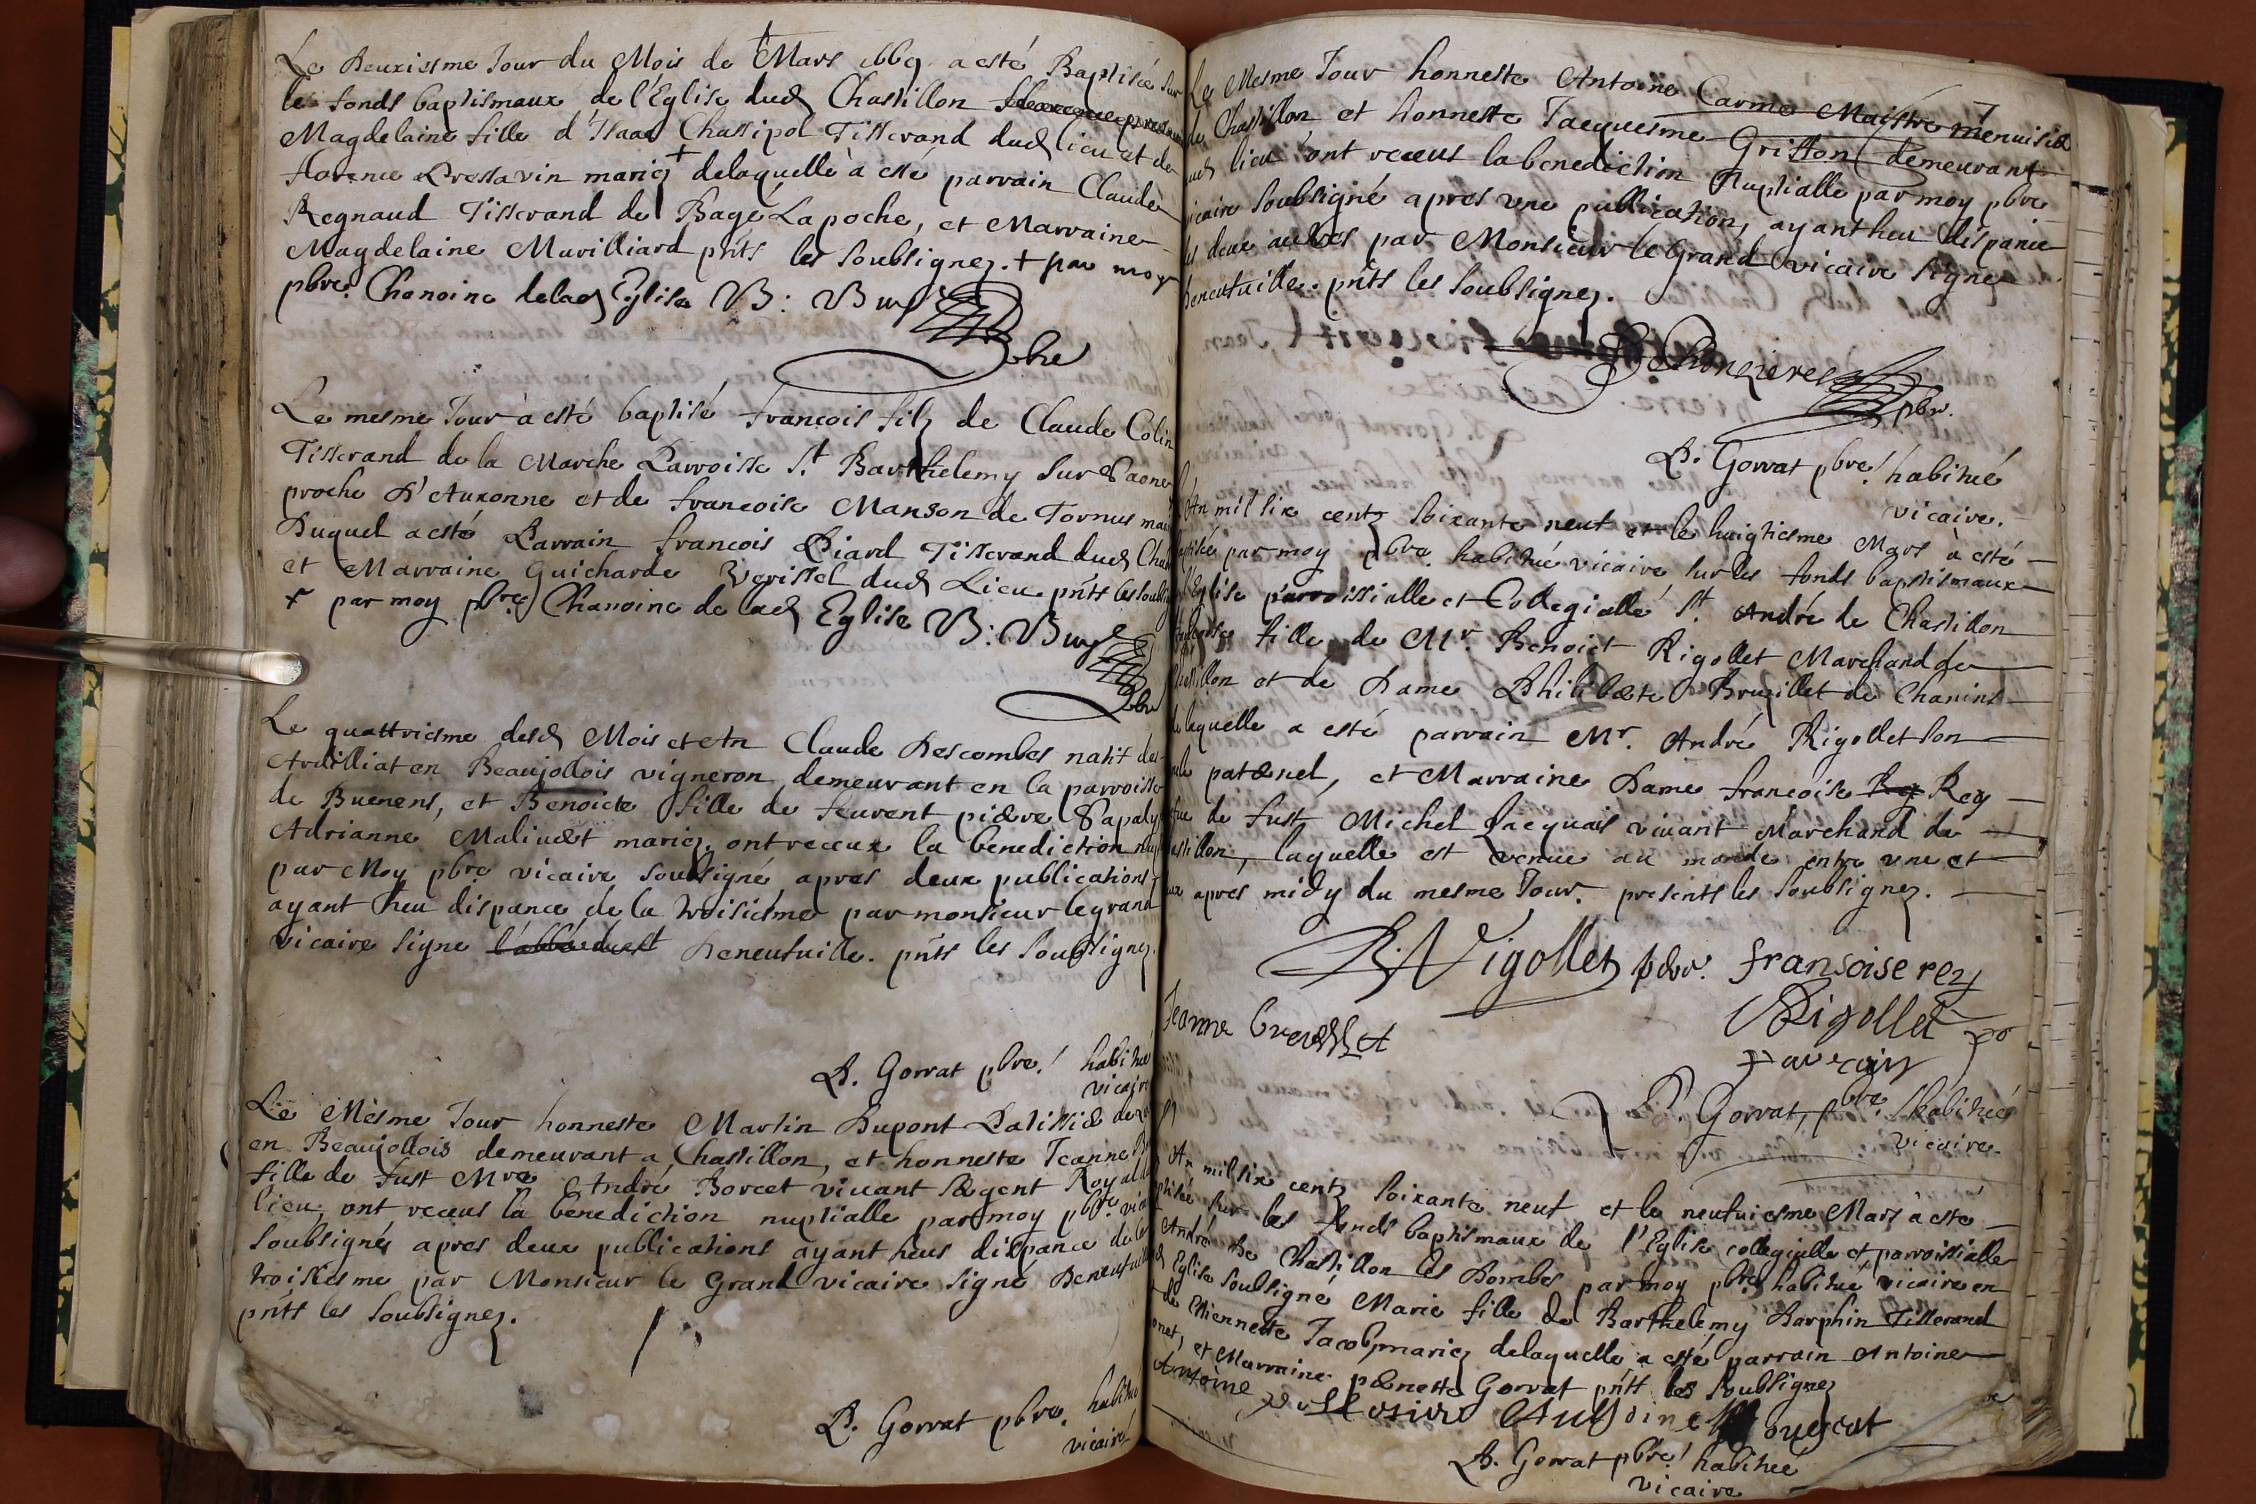 Le Deuxiesme Jour du Mois de Mars 1669 a esté Baptisée sur
les fonds baptismaux de l'Eglise dud Chastillon
Magdelaine fille d'Isaac Chassipol Tisserand dud lieu et de
florence Pressavin mariez + delaquelle à esté parrain Claude
Regnaud Tisserand de Bagé Lapoche, et Marraine
Magdelaine Muvilliard pnts les soubsignez. + par moy
pbre. Chanoine delad Eglise B: Buy
pbre
Le mesme Jour à esté baptisé françois filz de Claude Colin
Tisserand de la Marche Parroisse St Barthelemy sur Saone
proche D'Auxonne et de francoise Manson de Tornus
Duquel a esté Parrain francois Piard Tisserand dud
et Marraine Guicharde Verissel dud Lieu pnts les
+ par moy pbre Chanoine de lad Eglise B: Buy
pbr
Le quattriesme desd Mois et An Claude Descombes natif des
Ardilliat en Beaujollois vigneron demeurant en la parroisse
de Buenens, et Benoicte fille de feuvent pierre Papaly
Adrianne Maliuert mariez, ont receux la benediction
par Moy pbre vicaire soubsigné, apres deux publications
ayant heu dispance de la troisiesme par monsieur le grand
vicaire signe Deneufuille. pnts les soubsignez.
P. Gorrat pbre! habitué
vicaire
Le Mesme Jour honneste Martin Dupont Patissier de
en Beaujollois demeurant a Chastillon, et honneste Jeanne
fille de fust Mre André Borcet viuant Sergent Royal
lieu, ont receus la benediction nuptialle par moy pbre
soubsigné apres deux publications ayant heus dispance de la
troisiesme par Monsieur le Grand vicaire signé Deneufuille
pnts les soubsignez.
P. Gorrat pbre. habitué
vicaire
Le Mesme Jour honneste Antoine Carme Maistre menuisier
de Chastillon et honneste Jacquesme Griffon demeurant
dud lieu ont receus la benediction Nuptialle par moy pbre
vicaire soubsigné apres vne publication, ayant heu dispance
des deux aultres par Monsieur le Grand vicaire signe
Deneufuille. pnts les soubsignez.
pbr.
P. Gorrat pbre! habitué
vicaire.
An mil six centz soixante neuf et le huigtiesme Mars à esté
par moy pbre. habitué vicaire, sur les fonds baptismaux
Eglise parroissialle et Collegialle St. André de Chastillon
fille de Mr. Benoict Rigollet Marchand de
Chastillon et de Dame Philiberte Bruzillet de Chanins
de laquelle a esté parrain Mr. André Rigollet son
paternel, et Marraine Dame francoise Rey
de fust Michel Jacquais viuant Marchand de
Chastillon, laquelle est venue au monde entre vne et
deux apres midy du mesme Jour. presents les soubsignez.
Rigollet pere. fransoise rey
Rigollet
Jeanne
parrain
P. Gorrat, pbre. habitué
vicaire.
An mil six centz soixante neuf et le neufuiesme Mars à esté
sur les fonds baptismaux de l'Eglise collegialle et parroissialle
André de Chastillon les Dombes par moy pbre habitué vicaire en
Eglise soubsigné Marie fille de Barthelemy Darphin Tisserand
de Estiennette Jacob mariez delaquelle a esté parrain Antoine
et Marraine pernette Gorrat pnts les soubsignez
Antoine
P. Gorrat pbre! habitué
vicaire